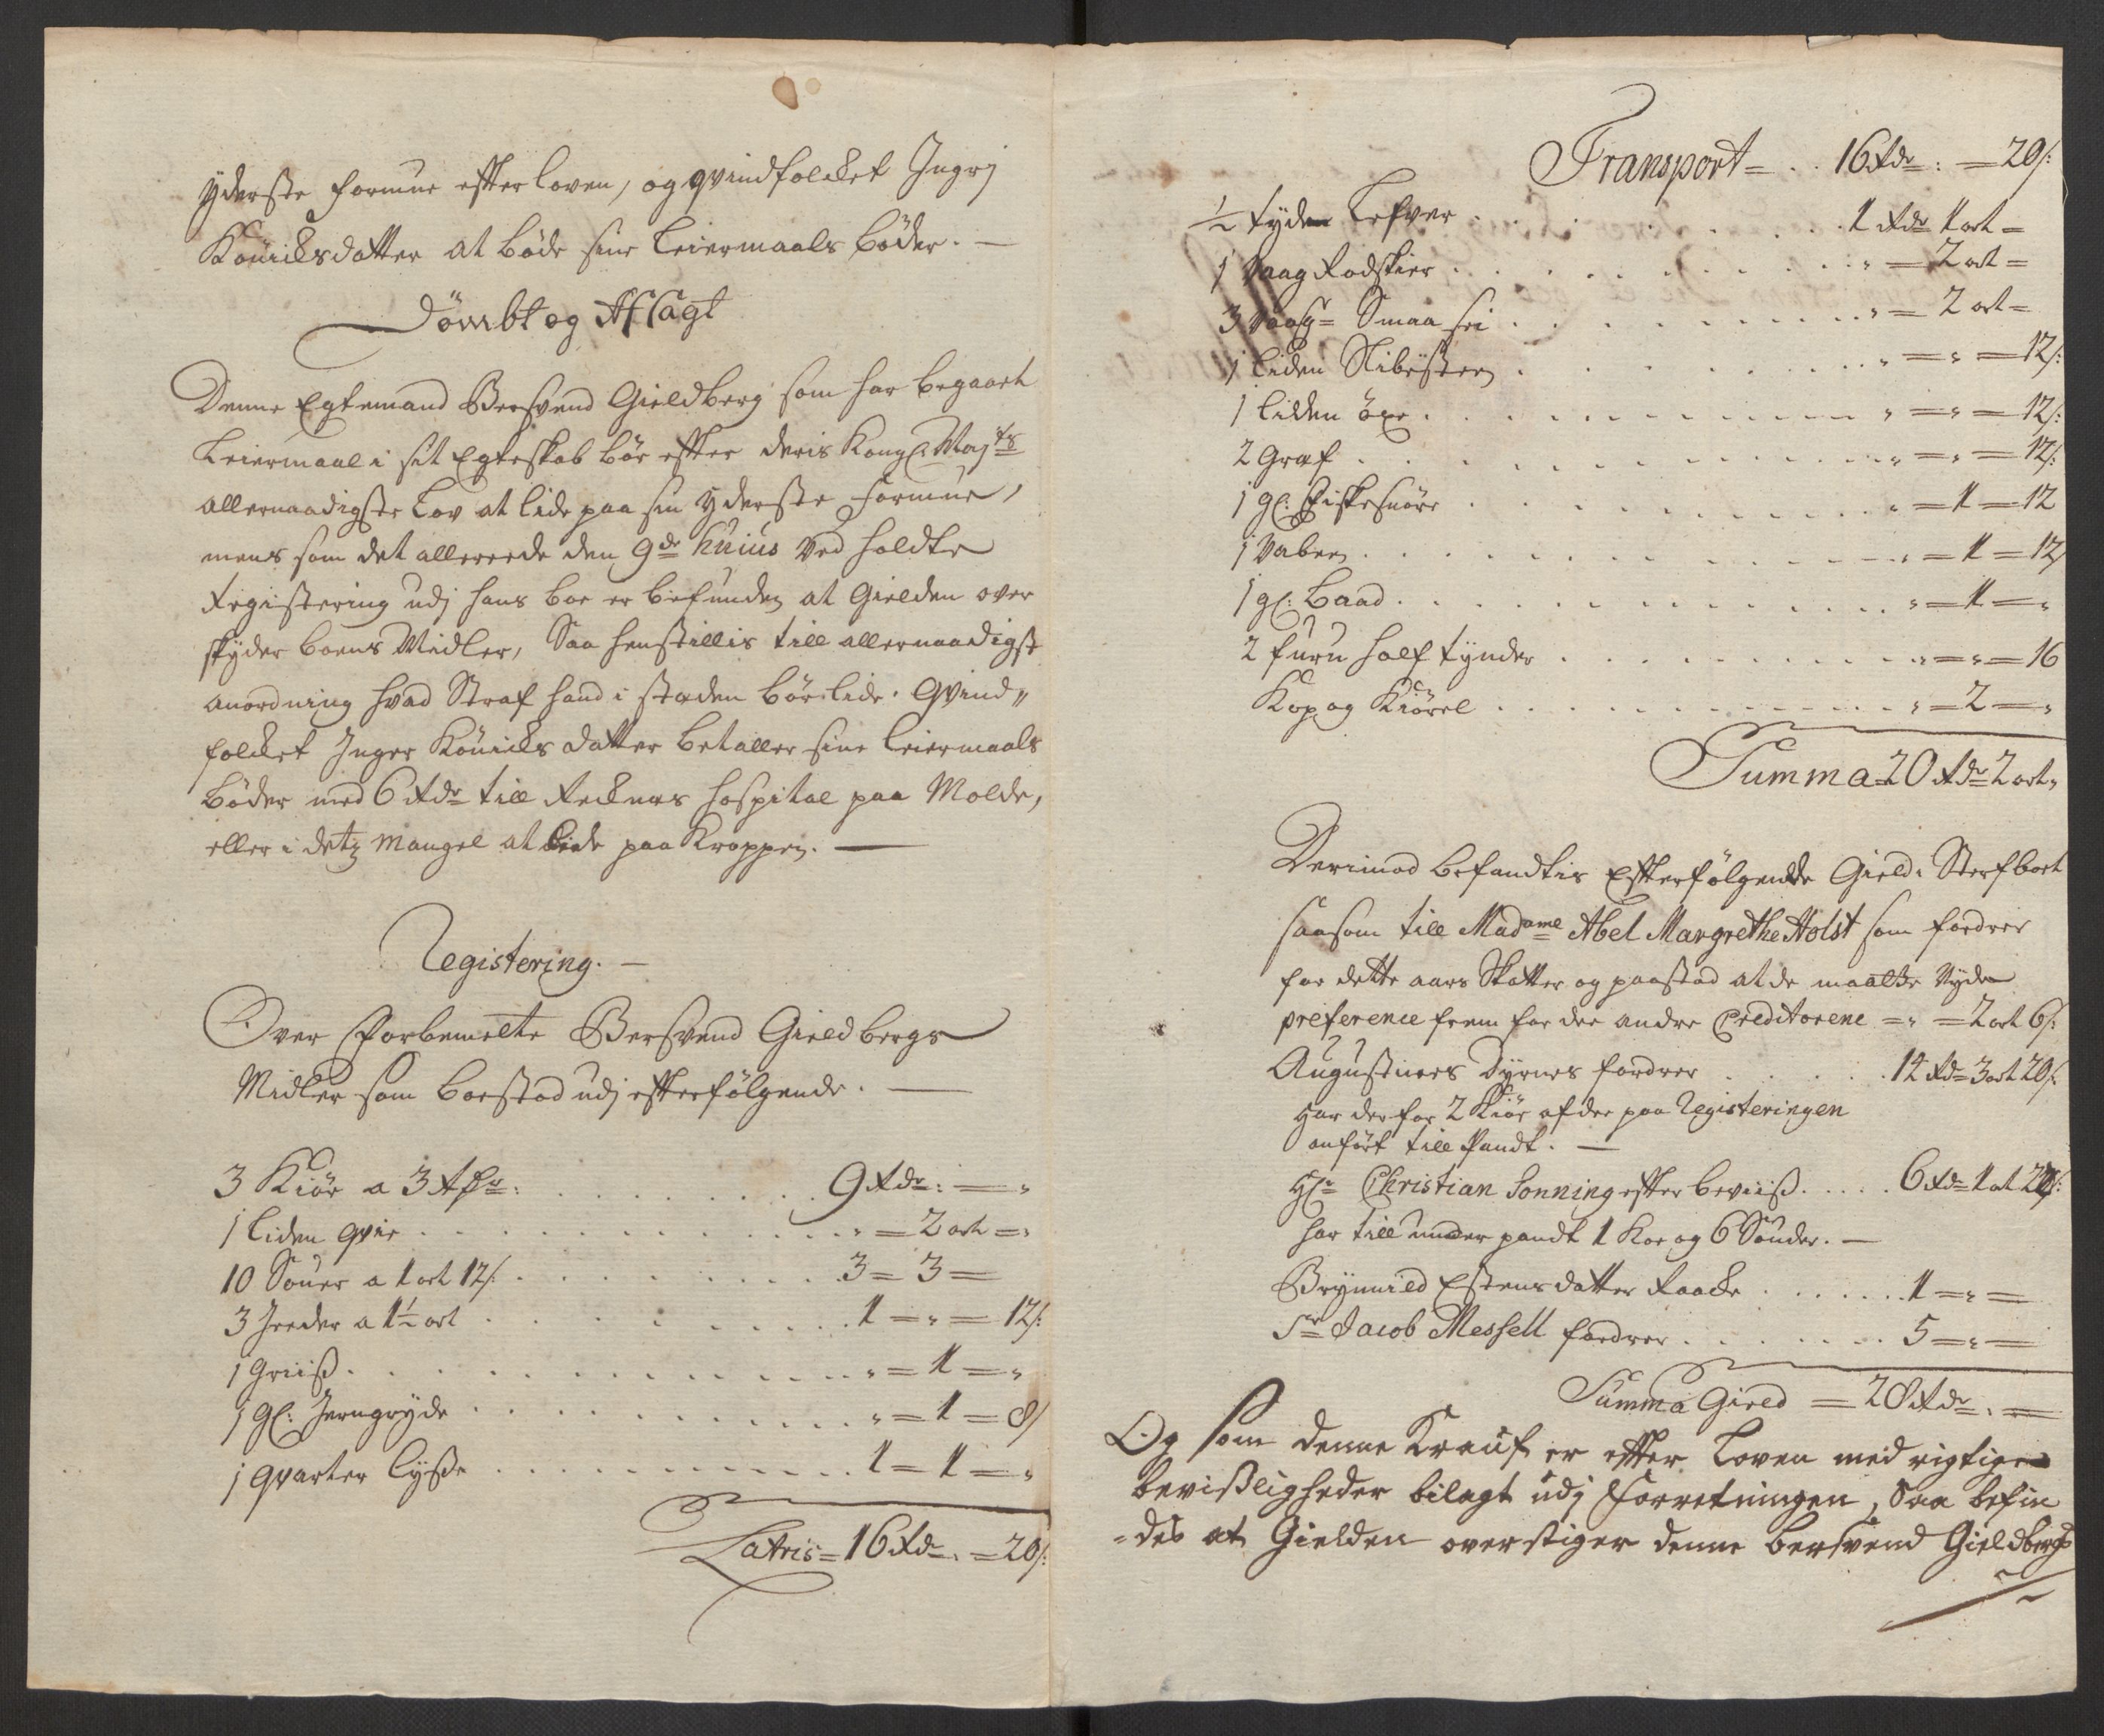 yderste formue effter loven, og qvindfolcket Ingrj
Kouicksdatter at bøde sine leiermaals bøder. —
Dømbt og Afsagt
Denne Egtemand Bersvend Gieldberg som har begaaet
Leiermaal i sit Egteskab bør effter deris Kongl. Mayts
allernaadigste Lov at lide paa sin yderste formue,
mens som det allereede den 9de huius ved holdte
Registering udj hans boe er befunden at Gielden over
skyder boens Midler, Saa henstillis till allernaadigst
anordning hvad Straf hand i steden bør lide. Qvind„
folcket Inger Kouicks datter betaller sine leiermaals
bøder med 6 rdr till Recknes hospital paa Molde,
eller i detz mangel at lide paa Kroppen. —
Registering. —
Over Forbemelte Bersvend Gieldbergs
Midler som bestod udj effterfølgende. —
3 Kiør a 3 rdr: . . . 9 rdr: — „
1 liden qvie . . . „ = 2 ort = „
10 Souer a 1 ort 12 s: . . . 3 = 3 =
3 Geeder a 1½ ort . . . 1 = „ = 12 s:
1 Griiss . . . „ = 1 = „
1 gl: Jerngryde . . . „ = 1 = 8 s
1 qvarter lysse . . . 1 = 1 = „
Latris = 16 rdr „ = 20 s:
Transport = . . 16 rdr: = 20 s:
½ tyde Lefver . . . 1 rdr 1 ort =
1 Vaag Rodskier . . . „ = 2 ort =
3 Vaag = Smaa sei . . . „ = 2 ort =
1 liden Slibesteen . . . „ = „ = 12 s:
1 liden øxe . . . „ = „ = 12 s:
2 Graf . . . „ = „ = 12 s:
1 gl: Fiskesnøre . . . „ = 1 = 12
1 Vaben . . . „ = 1 = 12
1 gl: Baad . . . „ = 1 = „
2 furu half tynder . . . „ = „ = 16
Kop og Kiørel . . . „ = 2 = „
Summa 20 rdr 2 ort „
Derimod befandtis Effterfølgende Gield i Sterfboet
saasom till Madame Abel Margrethe Holst som fordrer
for dette aars Skatter og paastod at de maatte Nyde
preference frem for dee andre Creditorene = „ = 2 ort 6 s:
Augustinus Dyrnes fordrer . . . 14 rdr 3 ort 20 s:
har der for 2 Kiør af dee paa Registeringen
anført till Pandt. —
Hr Christian Sonning effter beviiss . . . 6 rdr 1 ort 22 s:
har till under pandt 1 Koe og 6 Souder. —
Brynnild Estensdatter Raacke . . . 1 = „ =
Sr Jacob Messell fordrer . . . 5 = „ =
Summa Gield = 28 rdr „ =
Og som denne Krauf er effter Loven med rigtige
bevisligheder bilagt udj Forretningen, Saa befin
-des at Gielden overstiger denne Bersvend Gieldbergs